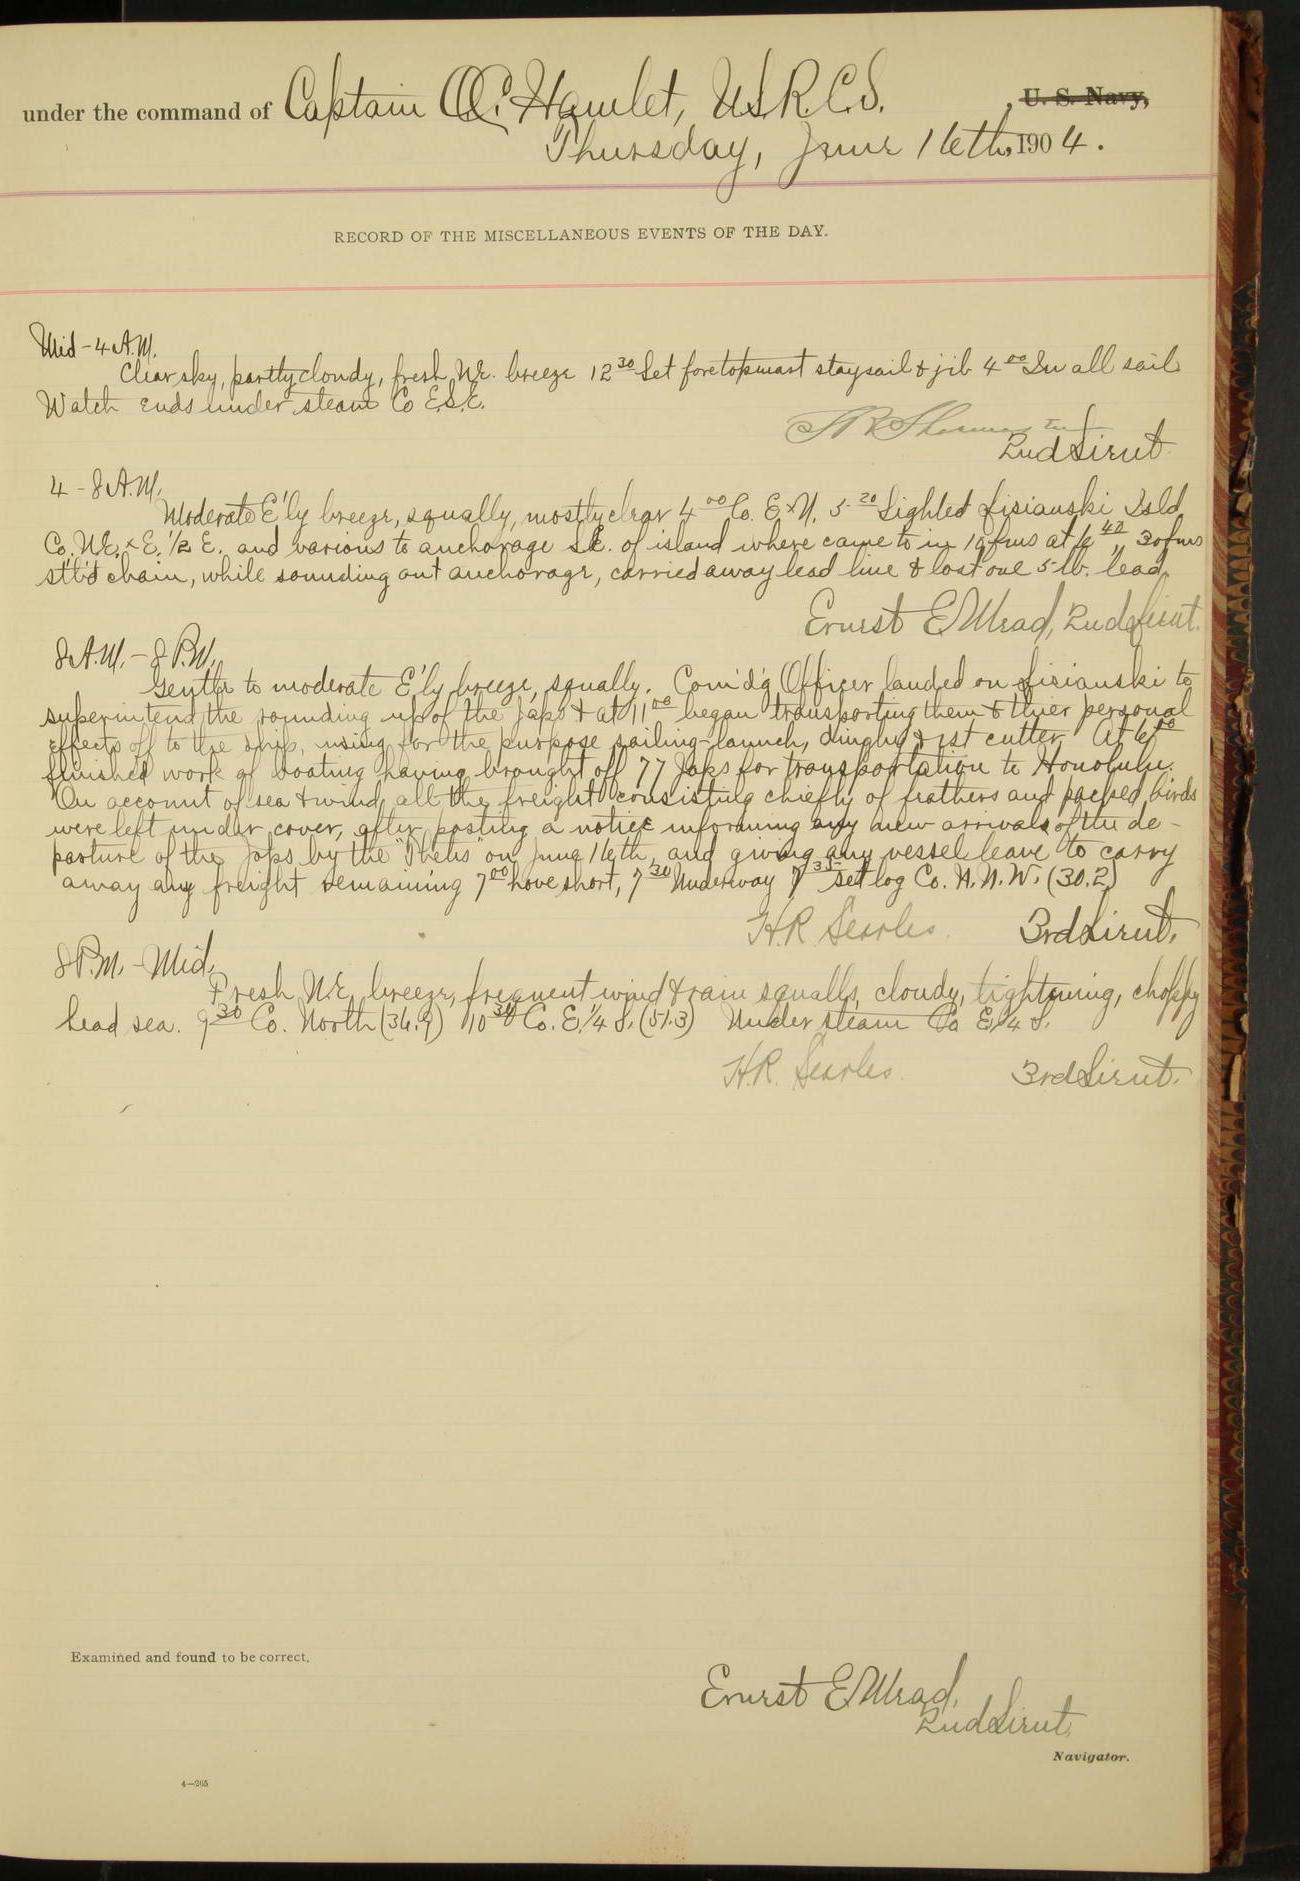 under the command of Captain O.C. Hamlet, U.S.R.C.S. , U. S. Navy,
Thursday, June 16th, 1904.
RECORD OF THE MISCELLANEOUS EVENTS OF THE DAY.
Mid - 4 A.M.
Clear sky, partly cloudy, fresh NE. breeze 12 30 Set foretopmast staysail & jib 4 00 In all sail
Watch ends under steam Co E.S.E.
2nd Lieut.
4 - 8 A.M.
Moderate E'ly breeze, squally, mostly clear 4 00 Co. E x N. 5 20 Sighted Lisianski Isld,
Co. NE. x E. 1/2 E. and various to anchorage S.E. of island where came to in 19 fms at 6 47, 30 fms
st'b'd chain, while sounding out anchorage, carried away lead line & lost one 5 lb. lead.
Ernest E. Mead, 2nd Lieut.
8 A.M. - 8 P.M.
Gentle to moderate E'ly breeze, squally. Com'd'g Officer landed on Lisianski to
superintend the rounding up of the Japs & at 11 00 began transporting them & thier personal
effects off to the ship, using for the purpose sailing-launch, dinghy & 1st cutter. At 6 00
finished work of boating having brought off 77 Japs for transportation to Honolulu.
On account of sea & wind, all the freight consisting chiefly of feathers and packed birds
were left under cover, after posting a notice informing any new arrivals of the de-
parture of the Japs by the "Thetis" on June 16th, and giving any vessel leave to carry
away any freight remaining 7 00 hove short, 7 30 Underway 7 35 set log Co. N.N.W. (30.2)
H.R. Searles. 3rd Lieut.
8 P.M. - Mid.
Fresh N.E. breeze, frequent wind & rain squalls, cloudy, lightning, choppy
head sea. 9 30 Co. North (36.9) 10 30 Co. E. 1/4 S. (51.3) Under steam Co E. 1/4 S.
H.R. Searles. 3rd Lieut.
Examined and found to be correct.
Ernest E. Mead,
2nd Lieut.
Navigator.
4—265